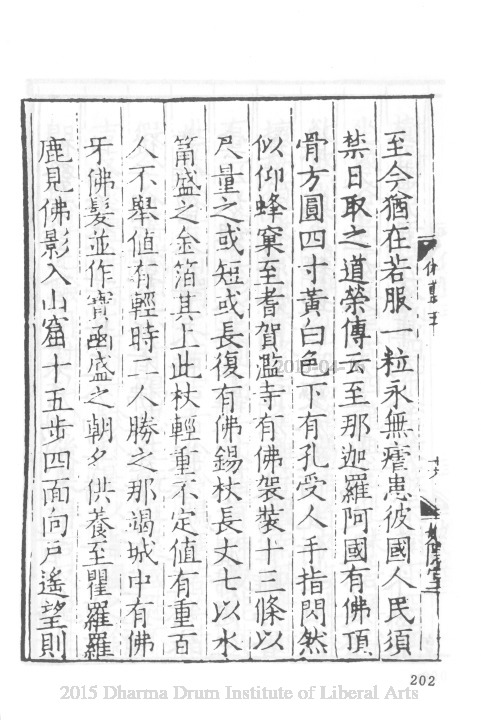 至今猶在若服一粒永無瘧患彼國人民須
禁日取之道榮傳云至那迦羅阿國有佛頂
骨方圓四寸黃白色下有孔受人手指閃然
似仰蜂窠至耆賀濫寺有佛袈裟十三條以
尺量之或短或長復有佛錫杖長丈七以水
筩盛之金箔其上此杖輕重不定值有重百
人不舉值有輕時二人勝之那竭城中有佛
牙佛髮並作寶函盛之朝夕供養至瞿羅羅
鹿見佛影入山窟十五步四面向戶遙望則
202
2015 Dharma Drum Institute of Liberal Arts